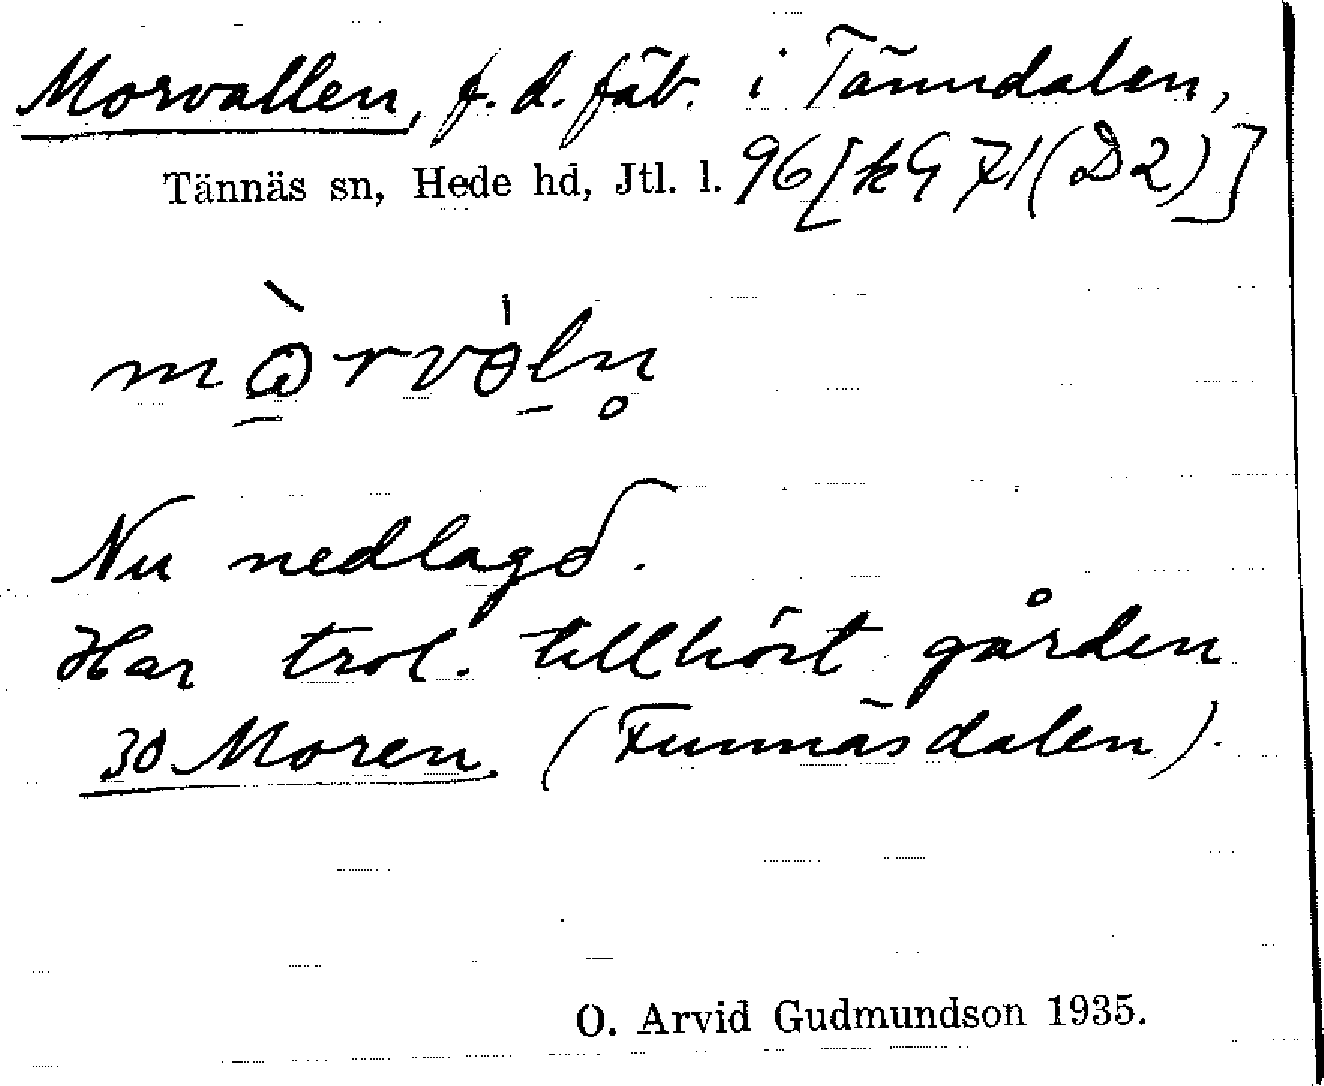 Morvallen, f. d. fäb. i Tänndalen,
Tännäs sn, Hede hd, Jtl. l. 96 [kG 71 (D2)]
Nu nedlagd.
Har trol. tillhört gården
30 Moren (Funnäsdalen).
O. Arvid Gudmundson 1935.